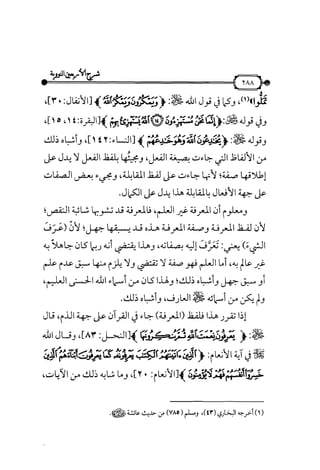 شرح الأربعين النووية
٢٨٨
تَمَلُّوا»(١)، وكما في قول الله ﷻ: ﴿وَيَمْكُرُونَ وَيَمْكُرُ اللَّهُ﴾ [الأنفال: ٣٠]،
وفي قوله ﷻ: ﴿إِنَّمَا نَحْنُ مُسْتَهْزِءُونَ ۝١٤ اللَّهُ يَسْتَهْزِئُ بِهِمْ﴾ [البقرة: ١٤، ١٥]،
وقوله ﷻ: ﴿يُخَادِعُونَ اللَّهَ وَهُوَ خَادِعُهُمْ﴾ [النساء: ١٤٢]، وأشباه ذلك
من الألفاظ التي جاءت بصيغة الفعل، ومجيئها بلفظ الفعل لا يدل على
إطلاقها صفة؛ لأنها جاءت على لفظ المقابلة، ومجيء بعض الصفات
على جهة الأفعال بالمقابلة هذا يدل على الكمال.
ومعلوم أن المعرفة غير العلم، فالمعرفة قد تشوبها شائبة النقص؛
لأن لفظ المعرفة وصفة المعرفة هذه قد يسبقها جهل؛ لأنَّ (عَرَّفَ
الشيءَ) يعني: تَعَرَّفَ إليه بصفاته، وهذا يقتضي أنه ربما كان جاهلاً به
غير عالمٍ به، أما العلم فهو صفة لا تقتضي ولا يلزم منها سبق عدم علم
أو سبق جهل وأشباه ذلك؛ ولهذا كان من أسماء الله الحسنى العليم،
ولم يكن من أسمائه ﷻ العارف، وأشباه ذلك.
إذا تقرر هذا فلفظ (المعرفة) جاء في القرآن على جهة الذم، قال
ﷻ: ﴿يَعْرِفُونَ نِعْمَتَ اللَّهِ ثُمَّ يُنكِرُونَهَا﴾ [النحل: ٨٣]، وقال الله
ﷻ في آية الأنعام: ﴿الَّذِينَ آتَيْنَاهُمُ الْكِتَابَ يَعْرِفُونَهُ كَمَا يَعْرِفُونَ أَبْنَاءَهُمُ الَّذِينَ
خَسِرُوا أَنفُسَهُمْ فَهُمْ لَا يُؤْمِنُونَ﴾ [الأنعام: ٢٠]، وما شابه ذلك من الآيات،
(١) أخرجه البخاري (٤٣)، ومسلم (٧٨٥) من حديث عائشة ﵂.